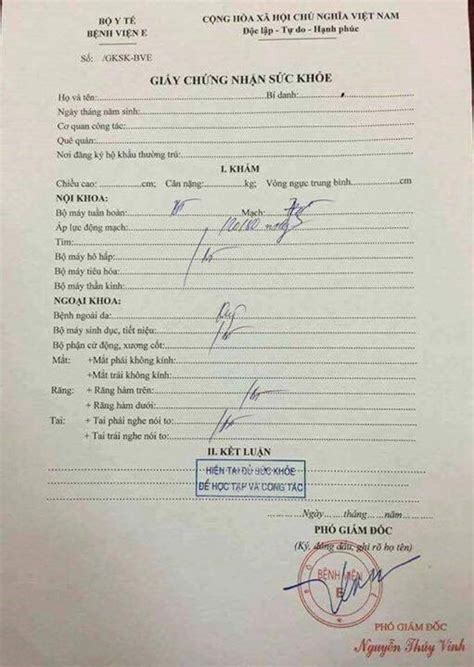 BỘ Y TẾ
BỆNH VIỆN E
CỘNG HÒA XÃ HỘI CHỦ NGHĨA VIỆT NAM
Độc lập - Tự do - Hạnh phúc
Số: /GKSK-BVE
GIẤY CHỨNG NHẬN SỨC KHỎE
Họ và tên: Bí danh:
Ngày tháng năm sinh:
Cơ quan công tác:
Quê quán:
Nơi đăng ký hộ khẩu thường trú:
I. KHÁM
Chiều cao: cm; Cân nặng: kg; Vòng ngực trung bình: cm
NỘI KHOA:
Bộ máy tuần hoàn: Mạch:
Áp lực động mạch:
Tim:
Bộ máy hô hấp:
Bộ máy tiêu hóa:
Bộ máy thần kinh:
NGOẠI KHOA:
Bệnh ngoài da:
Bộ máy sinh dục, tiết niệu:
Bộ phận cử động, xương cốt:
Mắt: +Mắt phải không kính:
+Mắt trái không kính:
Răng: + Răng hàm trên:
+ Răng hàm dưới:
Tai: + Tai phải nghe nói to:
+ Tai trái nghe nói to:
II. KẾT LUẬN
HIỆN TẠI ĐỦ SỨC KHỎE
ĐỂ HỌC TẬP VÀ CÔNG TÁC
Ngày tháng năm
PHÓ GIÁM ĐỐC
(Ký, đóng dấu, ghi rõ họ tên)
BỆNH VIỆN
E
PHÓ GIÁM ĐỐC
Nguyễn Thúy Vinh